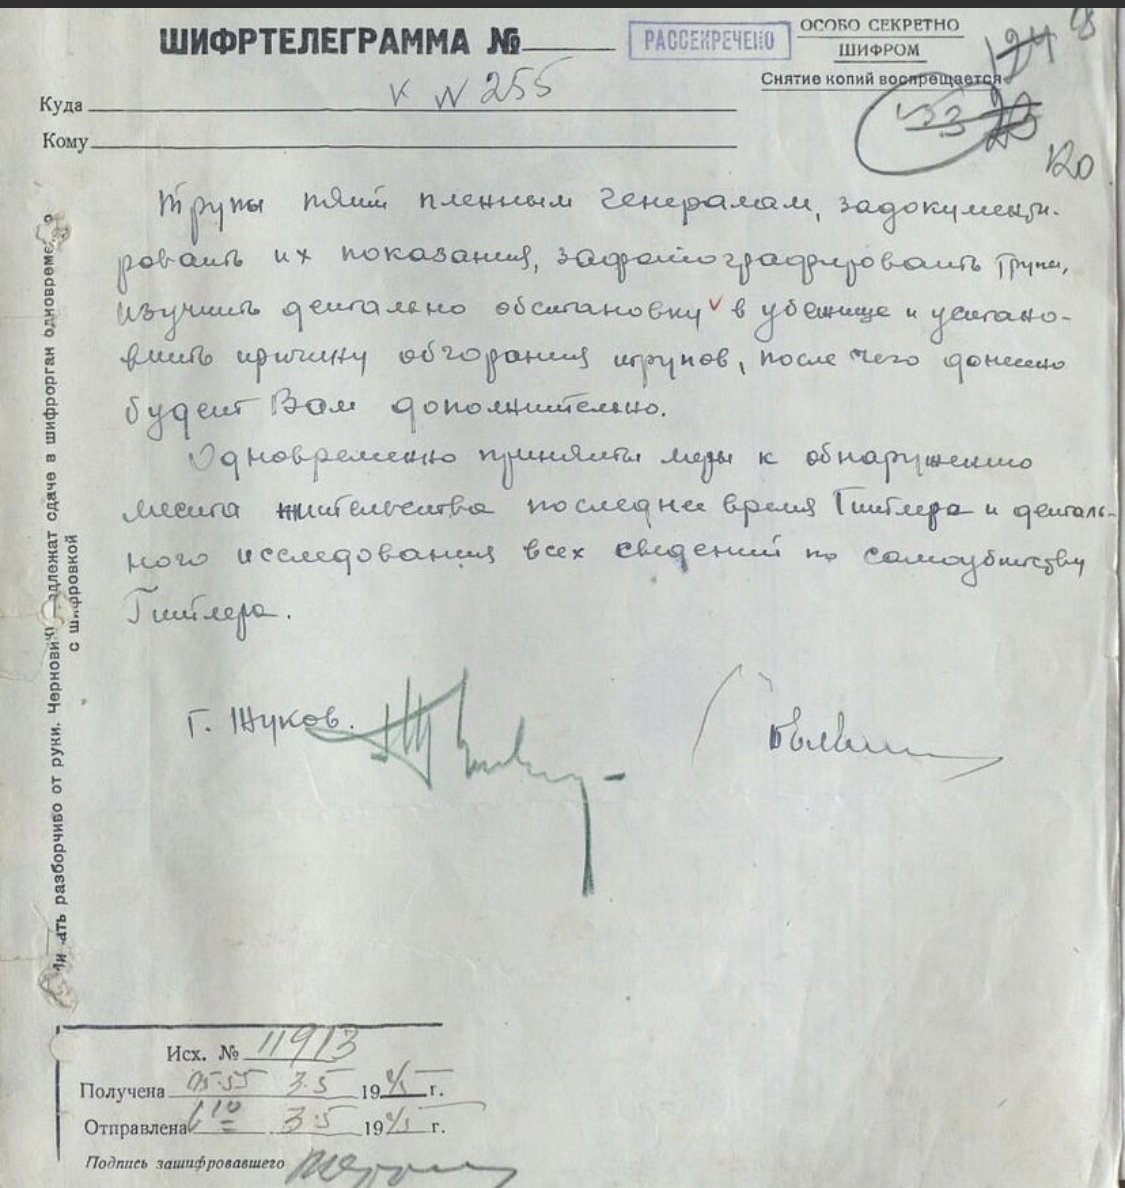 ШИФРТЕЛЕГРАММА №
РАССЕКРЕЧЕНО
ОСОБО СЕКРЕТНО
ШИФРОМ
Снятие копий воспрещается
124
33
23
120
Куда К N 255
Кому
Трупы этим пленным генералам, задокументи-
ровать их показания, зафотографировать трупы,
изучить детально обстановку в убежище и устано-
вить причину обгорания трупов, после чего донесено
будет Вам дополнительно.
Одновременно приняты меры к обнаружению
места жительства последнее время Гитлера и деталь-
ного исследования всех сведений по самоубийству
Гитлера.
Г. Жуков.
разборчиво от руки. одновреме
адлежат сдаче в шифрорган
с шифровкой
Исх. № 11913
Получена 05.55 3.5 1945 г.
Отправлена 6 10 3.5 1945 г.
Подпись зашифровавшего